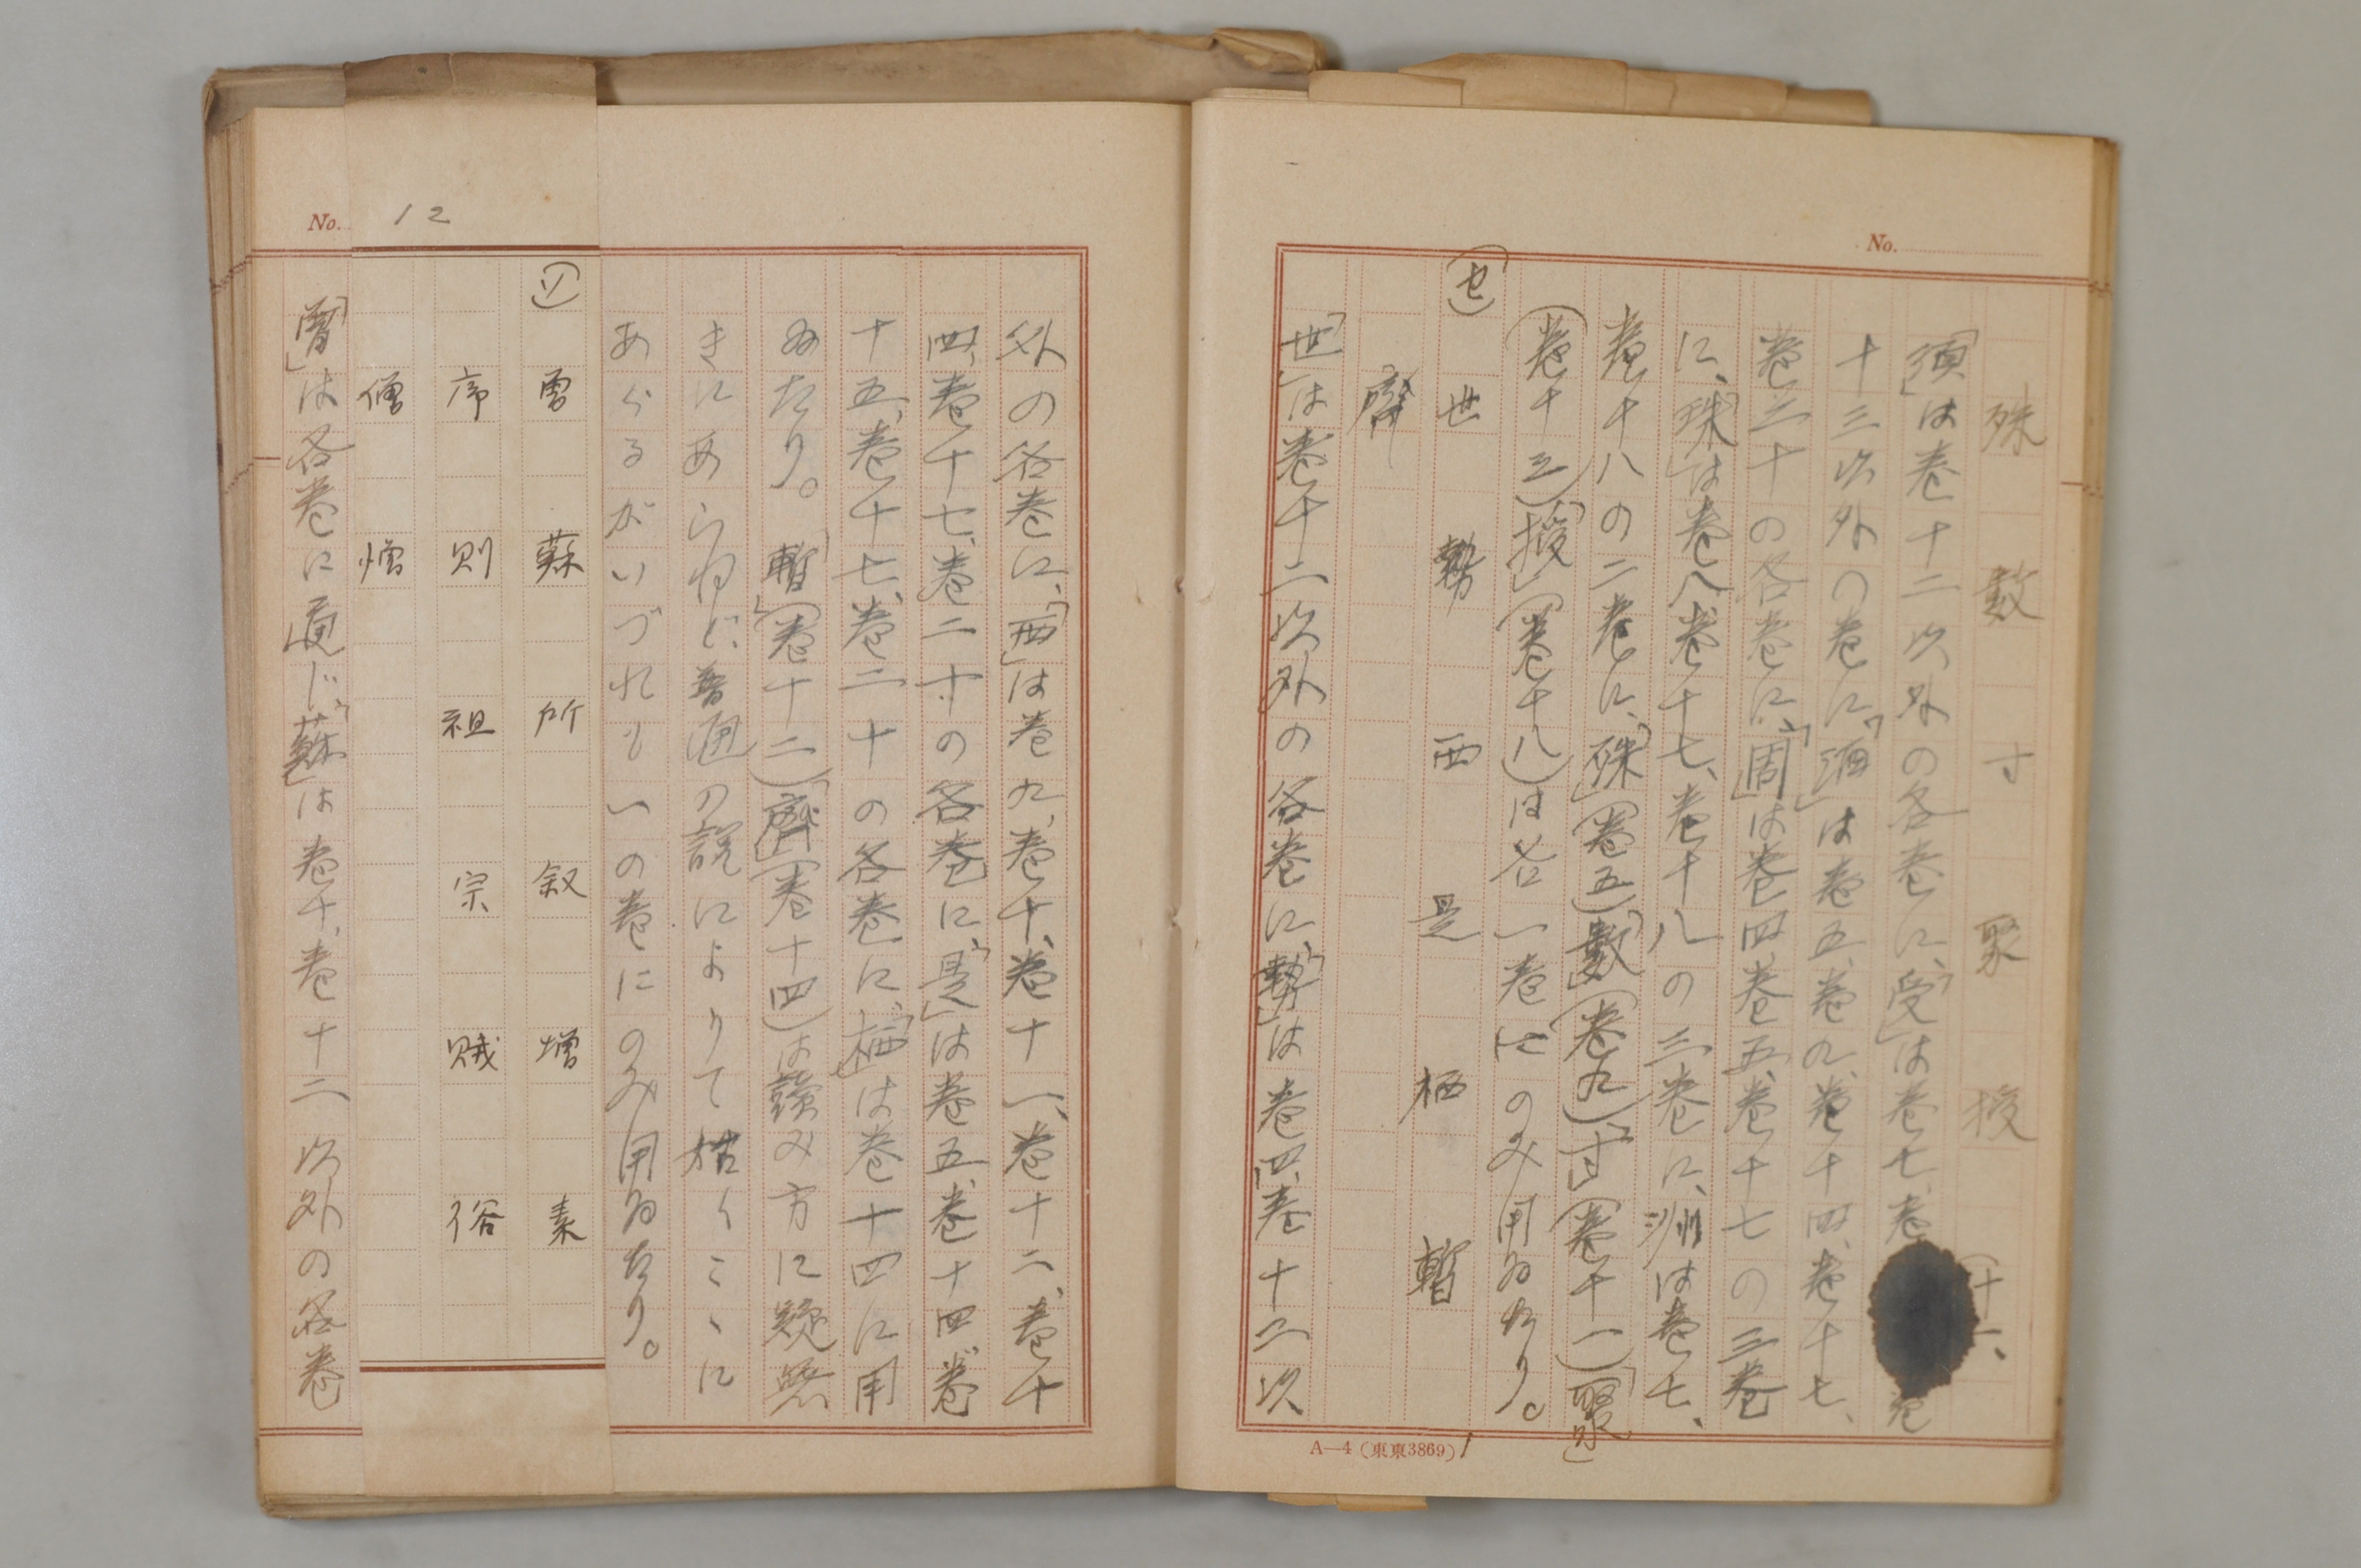 No.
殊 数 寸 聚 授
「須」は巻十二以外の各巻に、「受」は巻七、巻十一、巻
十三以外の巻に、「酒」は巻五、巻九、巻十四、巻十七、
巻二十の各巻に、「周」は巻四、巻五、巻十七の三巻
に、「珠」は巻八、巻十七、巻十八の三巻に、洲は巻七、
巻十八の二巻に、「殊」(巻五)「數」(巻九)「寸」(巻十一)「聚」
(巻十三)「授」(巻十八)は各一巻にのみ用ゐたり。
(セ) 世 勢 西 是 栖 暫
齊
「世」は巻十二以外の各巻に、「勢」は巻四、巻十二以
A—4(東東3869)
外の各巻に、「西」は巻九、巻十、巻十一、巻十二、巻十
四、巻十七、巻二十の各巻に、「是」は巻五、巻十四、巻
十五、巻十七、巻二十の各巻に、「栖」は巻十四に用
ゐたり。「暫」(巻十二)「齊」(巻十四)は讀み方に疑無
きにあらねど、普通の説によりて姑くこゝに
あぐるがいづれも一の巻にのみ用ゐたり。
No. 12
(ソ) 曽 蘇 所 叙 増 素
序 則 祖 宗 賊 俗
僧 憎
「曽」は各巻に通じ、「蘇」は巻十、巻十二以外の各巻